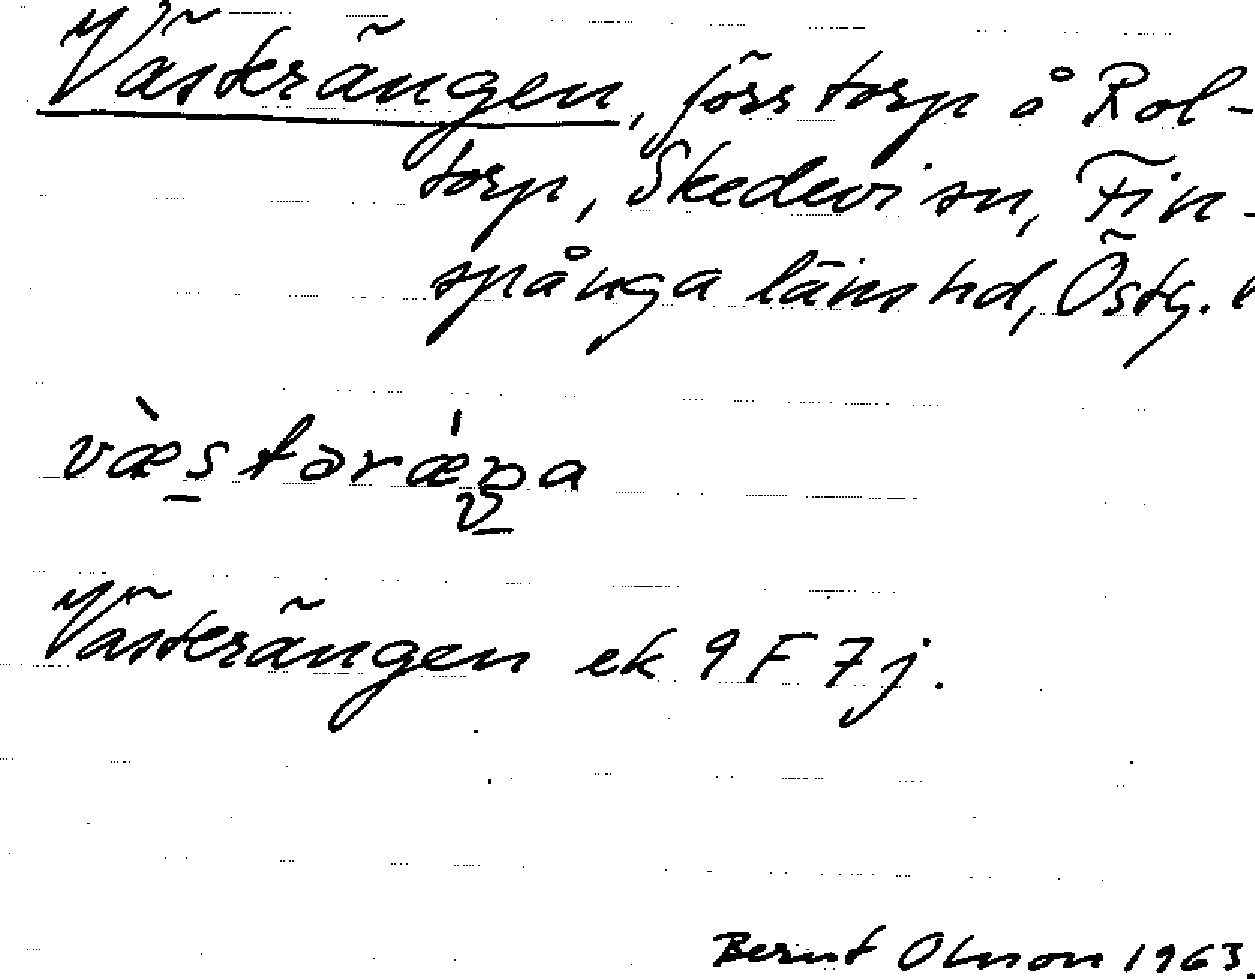 Västerängen, förr torp å Rol-
torp, Skedevi sn, Fin-
spånga läns hd, Östg.
Västerängen ek 9 F 7 j.
Bernt Olsson 1963.